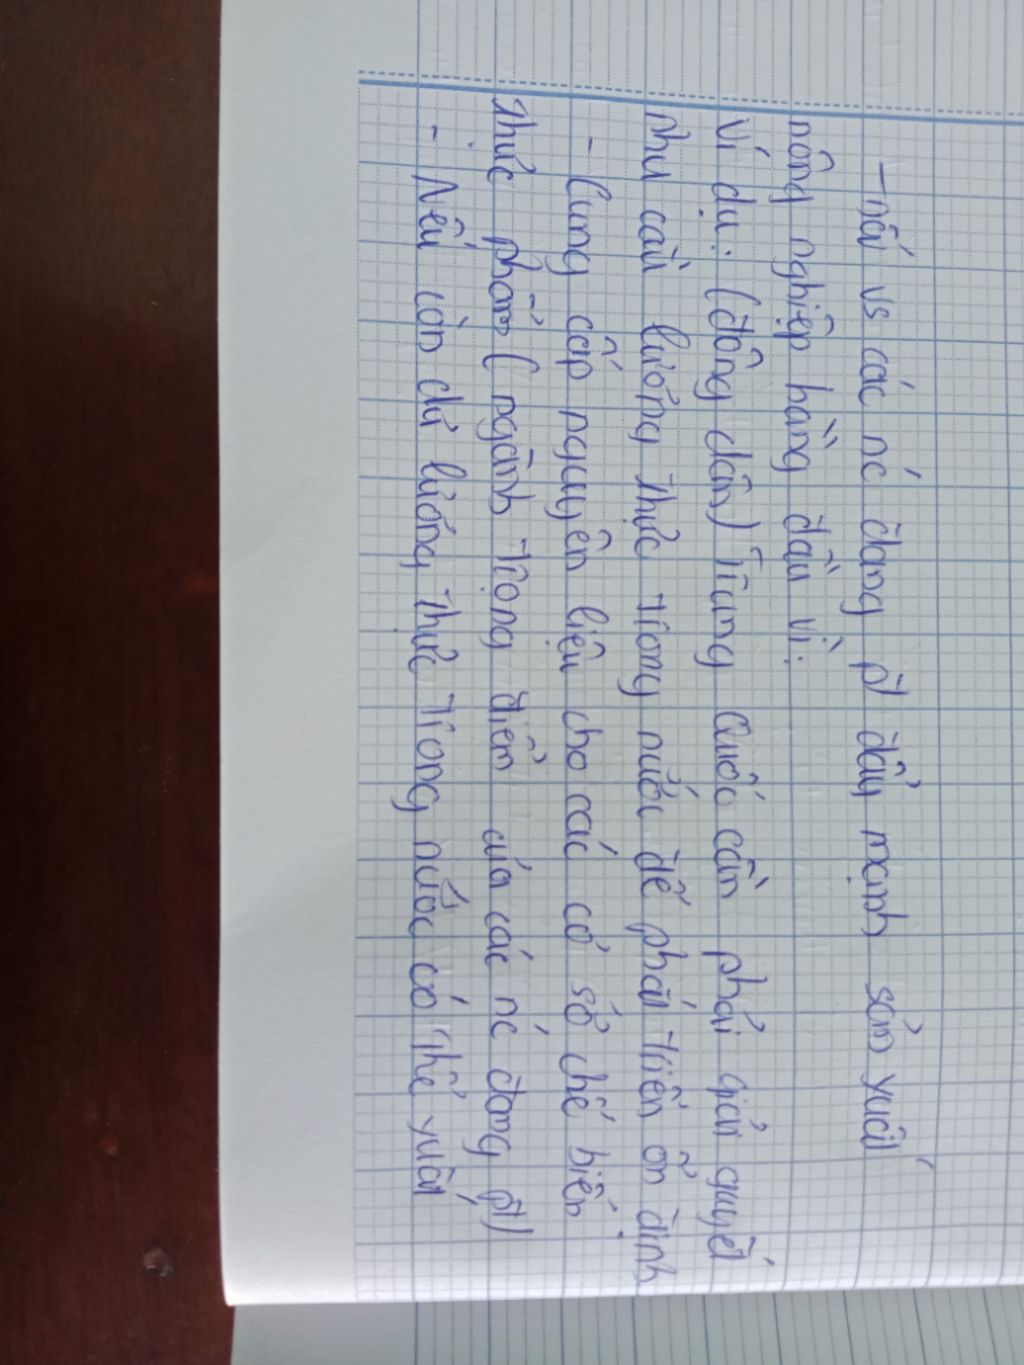 - nối vs các nc đang pt đẩy mạnh sản xuất
nông nghiệp hàng đầu vì:
Ví dụ: (đông dân) Trung Quốc cần phải giải quyết
nhu cầu lương thực trong nước để phát triển ổn định
- Cung cấp nguyên liệu cho các cơ sở chế biến
thực phẩm ( ngành trọng điểm của các nc đang pt)
- Nếu còn dư lương thực trong nước có thể xuất